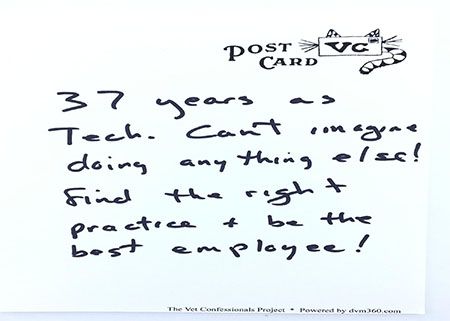 POST
CARD
VC
37 years as
Tech. Can't imagine
doing anything else!
Find the right
practice + be the
best employee!
The Vet Confessionals Project * Powered by dvm360.com